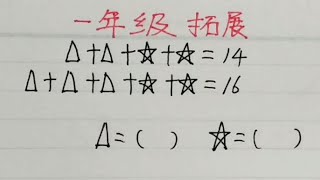 一年级 拓展
△+△+☆+☆=14
△+△+△+☆+☆=16
△=( ) ☆=( )